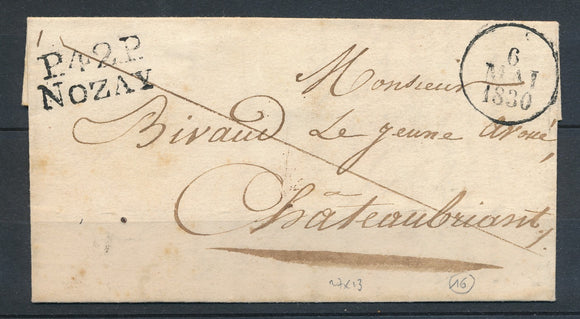 P.42.P.
NOZAY
6
MAI
1830
Monsieur
Bivaud Le jeune Avoué,
à
Châteaubriant
16